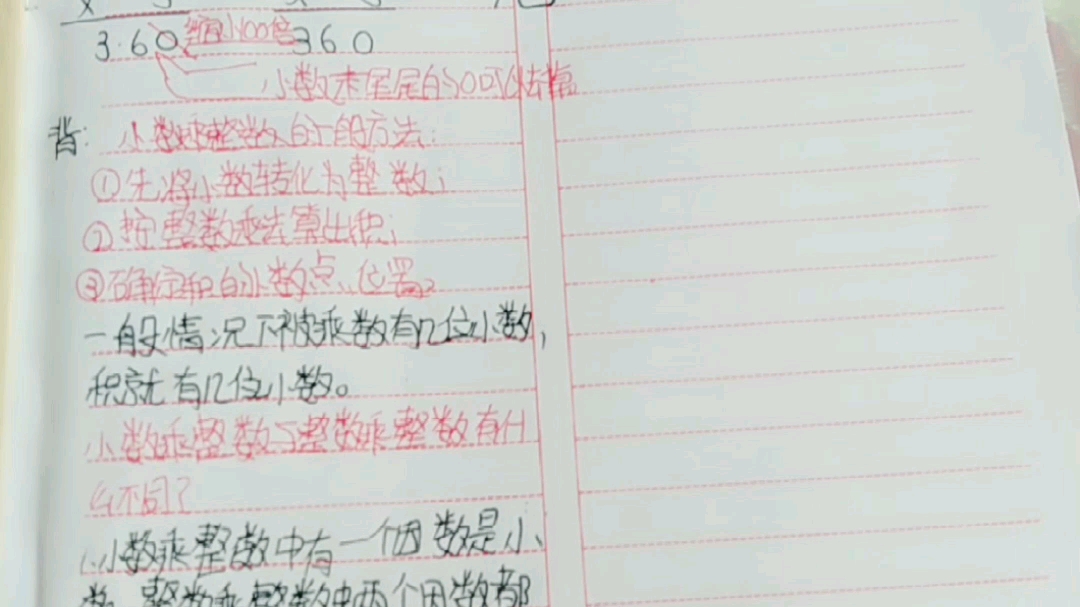 3.60 缩小100倍 360
小数末尾尾的0可以去掉
背: 小数乘整数的一般方法:
①先将小数转化为整数;
②按整数乘法算出积;
③确定积的小数点位置。
一般情况下被乘数有几位小数,
积就有几位小数。
小数乘整数与整数乘整数有什
么不同?
1.小数乘整数中有一个因数是小
数,整数乘整数中两个因数都